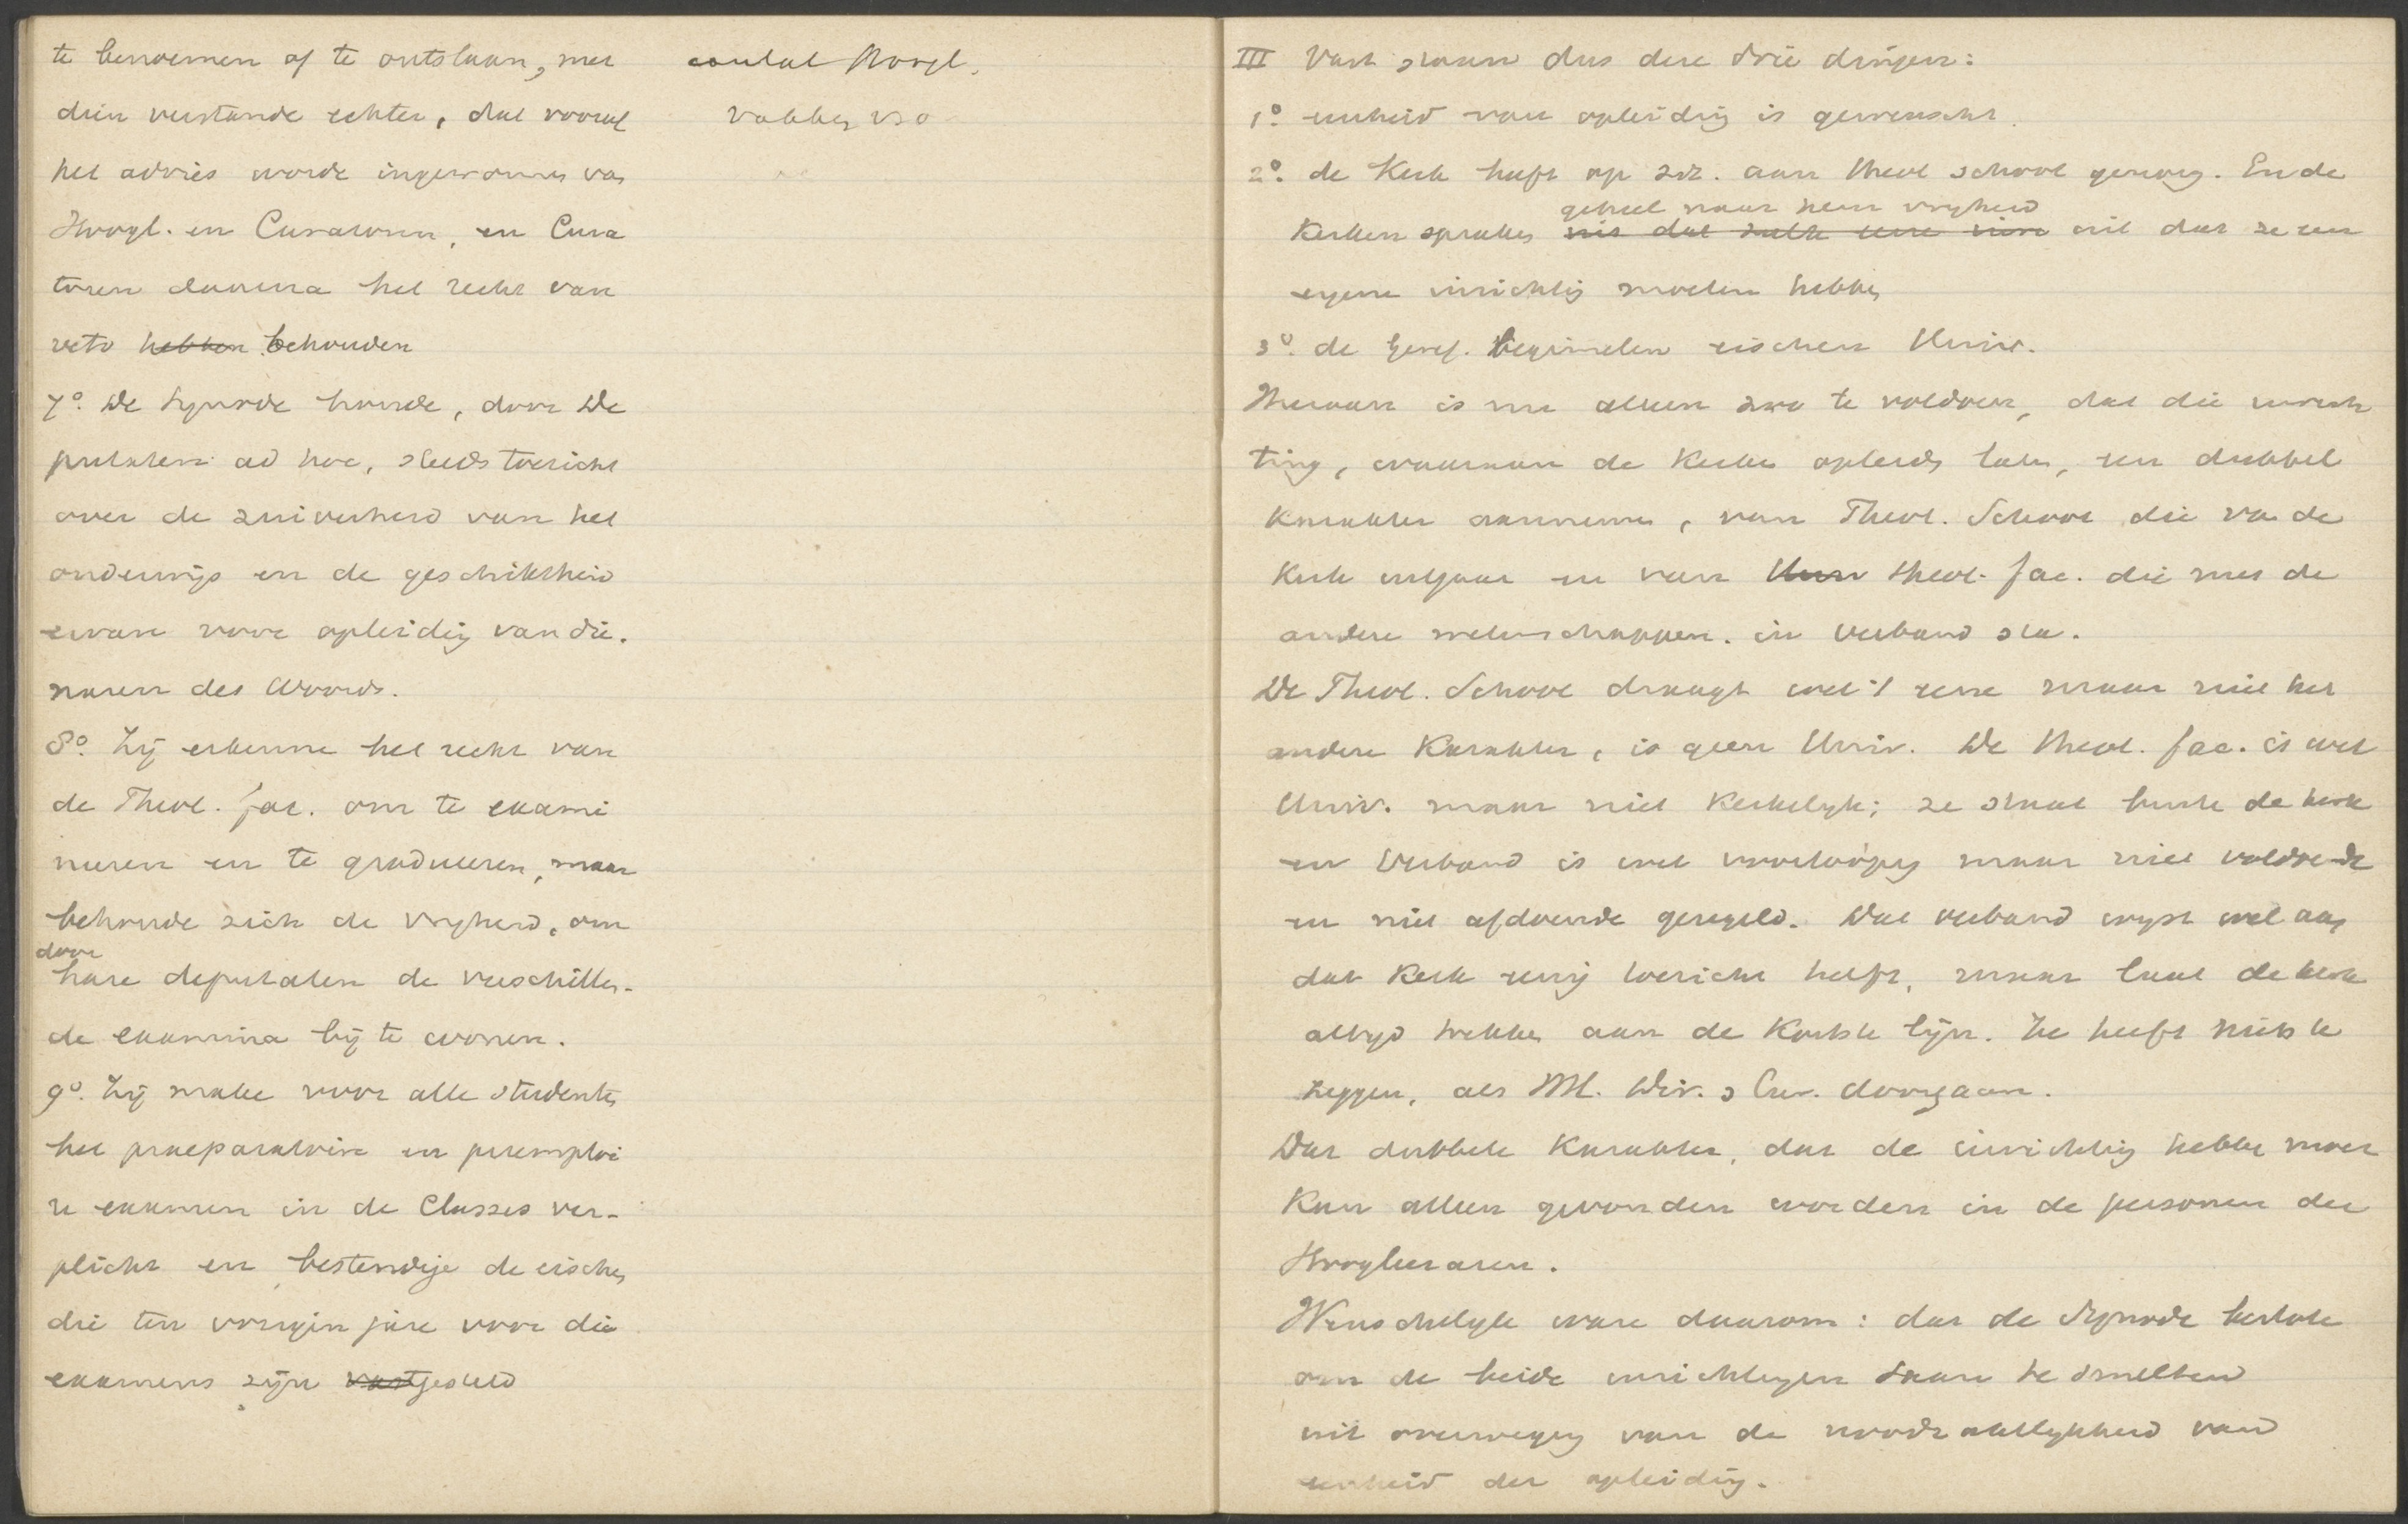 te benoemen of te ontslaan, met
dien verstande echter, dat vooraf
het advies worde ingewonnen van
Hoogl. en Curatoren, en Cura
toren daarna het recht van
veto hebben behouden
7º. De Synode houde, door De
putaten ad hoc, steeds toezicht
over de zuiverheid van het
onderwijs en de geschiktheid
ervan voor opleiding van die.
naren des Woords.
8º. Zij erkenne het recht van
de Theol. fac. om te exami
neren en te gradueeren, maar
behoude zich de vrijheid, om
door
hare deputaten de verschillen-
de examina bij te wonen.
9º. Zij make voor alle studenten
het praeparatoire en peremptoi
re examen in de Classes ver-
plicht en bestendige de eischen
die ten vorigen jare voor die
examens zijn vastgesteld
aantal Hoogl.
vakken
III Vast staan dus deze drie dingen:
1º. eenheid van opleiding is gewenscht.
2º. de Kerk heeft op zich. aan theol school genoeg. En de
geheel naar hun vrijheid
Kerken spraken uit dat ze een
eigene inrichting moeten hebben
3º. de Geref. beginselen eischen Univ.
Hieraan is nu alleen zoo te voldoen, dat die inrich
ting, waaraan de Kerken opleids laten, een dubbel
Karakter aanneme, van Theol. School die van de
Kerk uitgaat en van Univ theol. fac. die met de
andere wetenschappen. in verband sta.
De Theol. School draagt wel 't eene maar niet het
andere Karakter, is geen Univ. De theol. fac. is wel
Univ. maar niet Kerkelijk; ze staat buiten de kerk
en Verband is wel voorloopig maar niet voldoende
en niet afdoende geregeld. Dat verband wijst wel aan
dat Kerk eenig toezicht heeft, maar laat de kerk
altijd trekken aan de Kortste lijn. Ze heeft niets te
zeggen, als Dir. & Cur. doorgaan.
Dat dubbele Karakter, dat de inrichting hebbe moet
Kan alleen gevonden worden in de personen der
Hoogleeraren.
Wenschelijk ware daarom: dat de Synode besloot
om de beide inrichtingen saam te smelten
uit overweging van de noodzakelijkheid van
eenheid der opleiding.